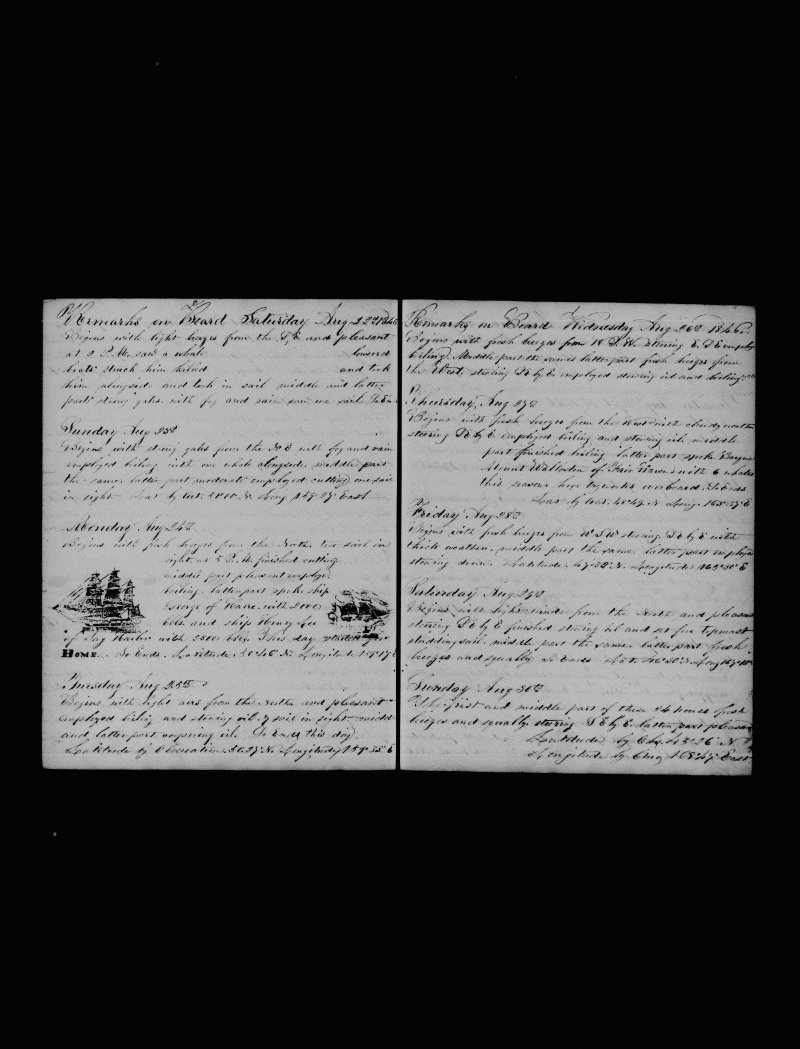 Remarks on Board Saturday Aug 22nd 1846
Begins with light breezes from the S, E and pleasant
at 2 P.M. saw a whale lowered
boats struck him killed and took
him alongside and took in sail middle and latter
part strong gales with fog and rain saw one sail So En
Sunday Aug 23d
Begins with strong gales from the N E with fog and rain
employed boiling with one whale alongside. middle part
the same. latter part moderate employed cutting one sail
in sight Lat by East
Monday Aug 24th
Begins with fresh breezes from the North two sail in
sight at 5 P.M. finished cutting
middle part pleasant employe
boiling latter part spoke ship
George of Havre with 2000
bbls and ship Henry Lee
of Sag Harbor with 2800 bbls. This day started for
HOME. So Ends. Latitude 50:46 N. Longitude
Aug 25th
Begins with light airs from the North and pleasant
employed boiling and stowing oil, 7 sail in sight midd
and latter part coopering oil. So Ends this day.
Latitude by Observation N. Longitude E
Remarks on Board Wednesday Aug 26th 1846
Begins with fresh breezes from steering E. employ
boiling. Middle part the same latter part fresh breezes from
the West steering S E by E. employed stowing oil and boiling.
Thursday, Aug 27th
Begins with fresh breezes from the West with cloudy weather
steering S E by E employed boiling and stowing oil. middle
part finished boiling latter part spoke Barque
of Fair Haven with 6 whales
this season hove tryworks overboard. So Ends
Lat by N. Long. E
Friday Aug 28th
Begins with fresh breezes from W S W steering S E by E with
thick weather. middle part the same. latter part employe
stowing down. Latitude N. Longitude E
Saturday Aug 29th
Begins with light winds from the North and pleasan
steering S E by E finished stowing oil and set fore topmast
studdingsail. middle part the same. latter part fresh
breezes and squally So Ends Lat. Long
Sunday Aug 30th
The first and middle part of these 24 hours fresh
breezes and squally steering S E by E. latter part pleasan
Latitude by Obs. 43:26 N
Longitude by Chro East